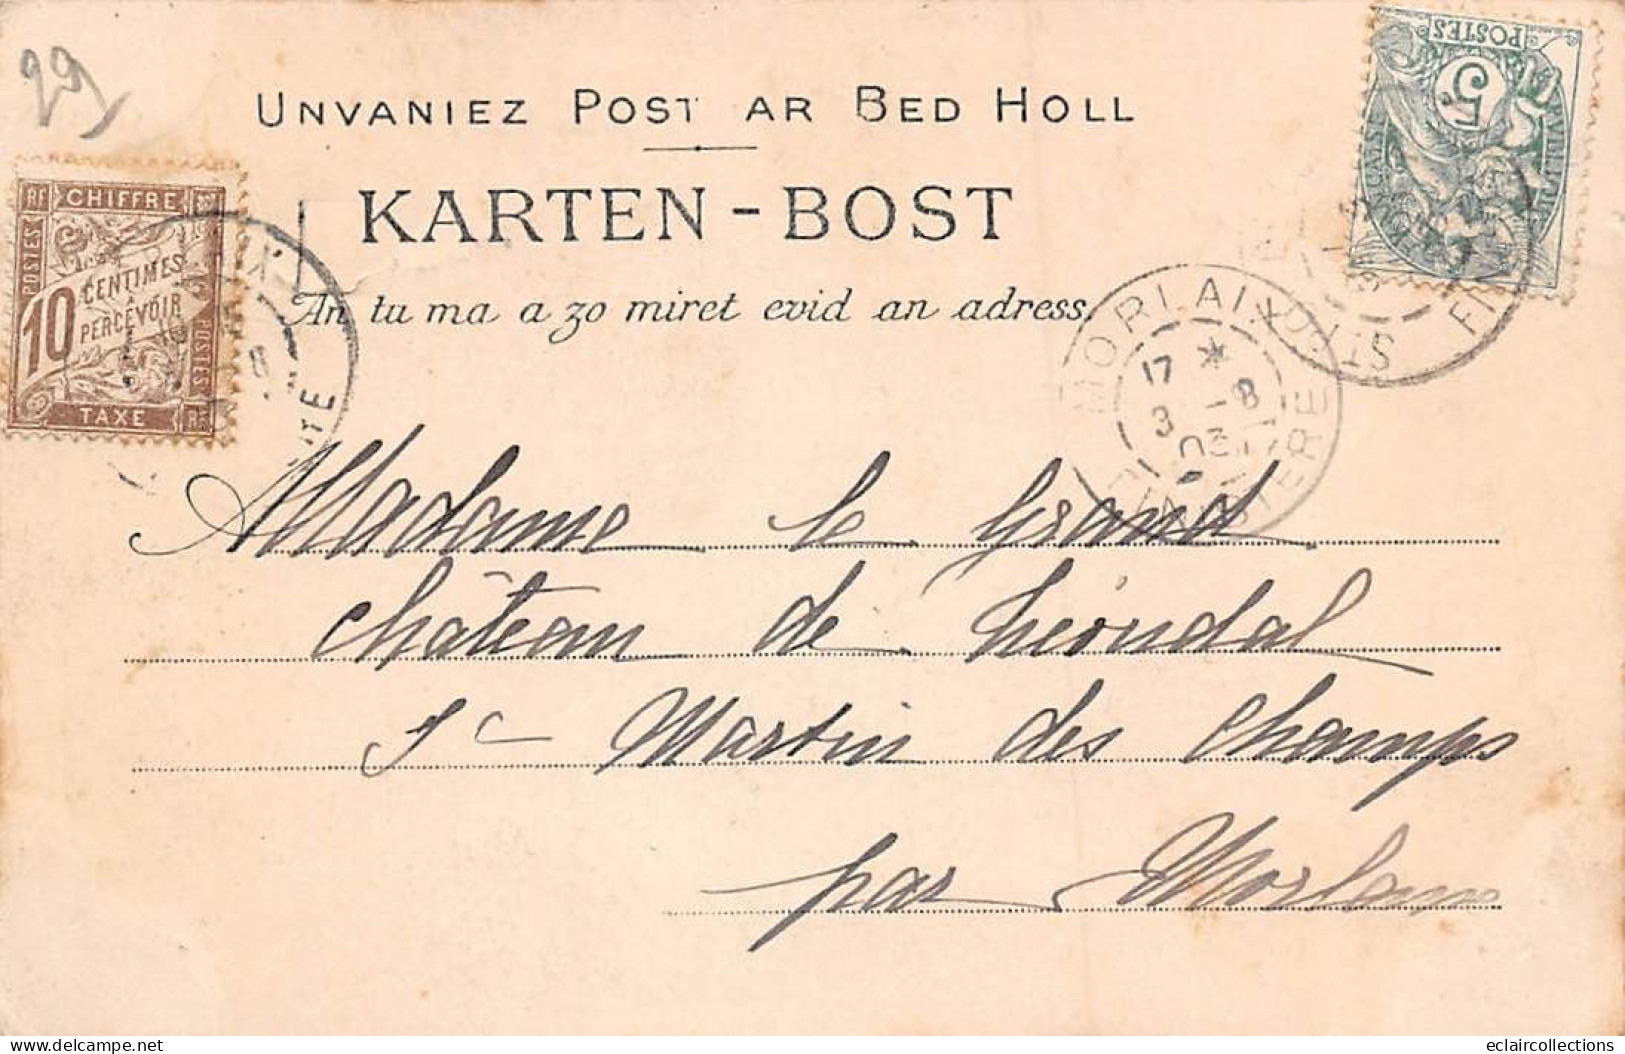 29
UNVANIEZ POST AR BED HOLL
KARTEN-BOST
An tu ma a zo miret evid an adress.
RF CHIFFRE
POSTES
10 CENTIMES
A
PERCEVOIR
POSTES
TAXE RF
POSTES
5
MORLAIX
17 *
3 -8
03
FINISTERE
Madame le Grand
château de
St Martin des Champs
par Morlaix
eclaircollections
delcampe.net